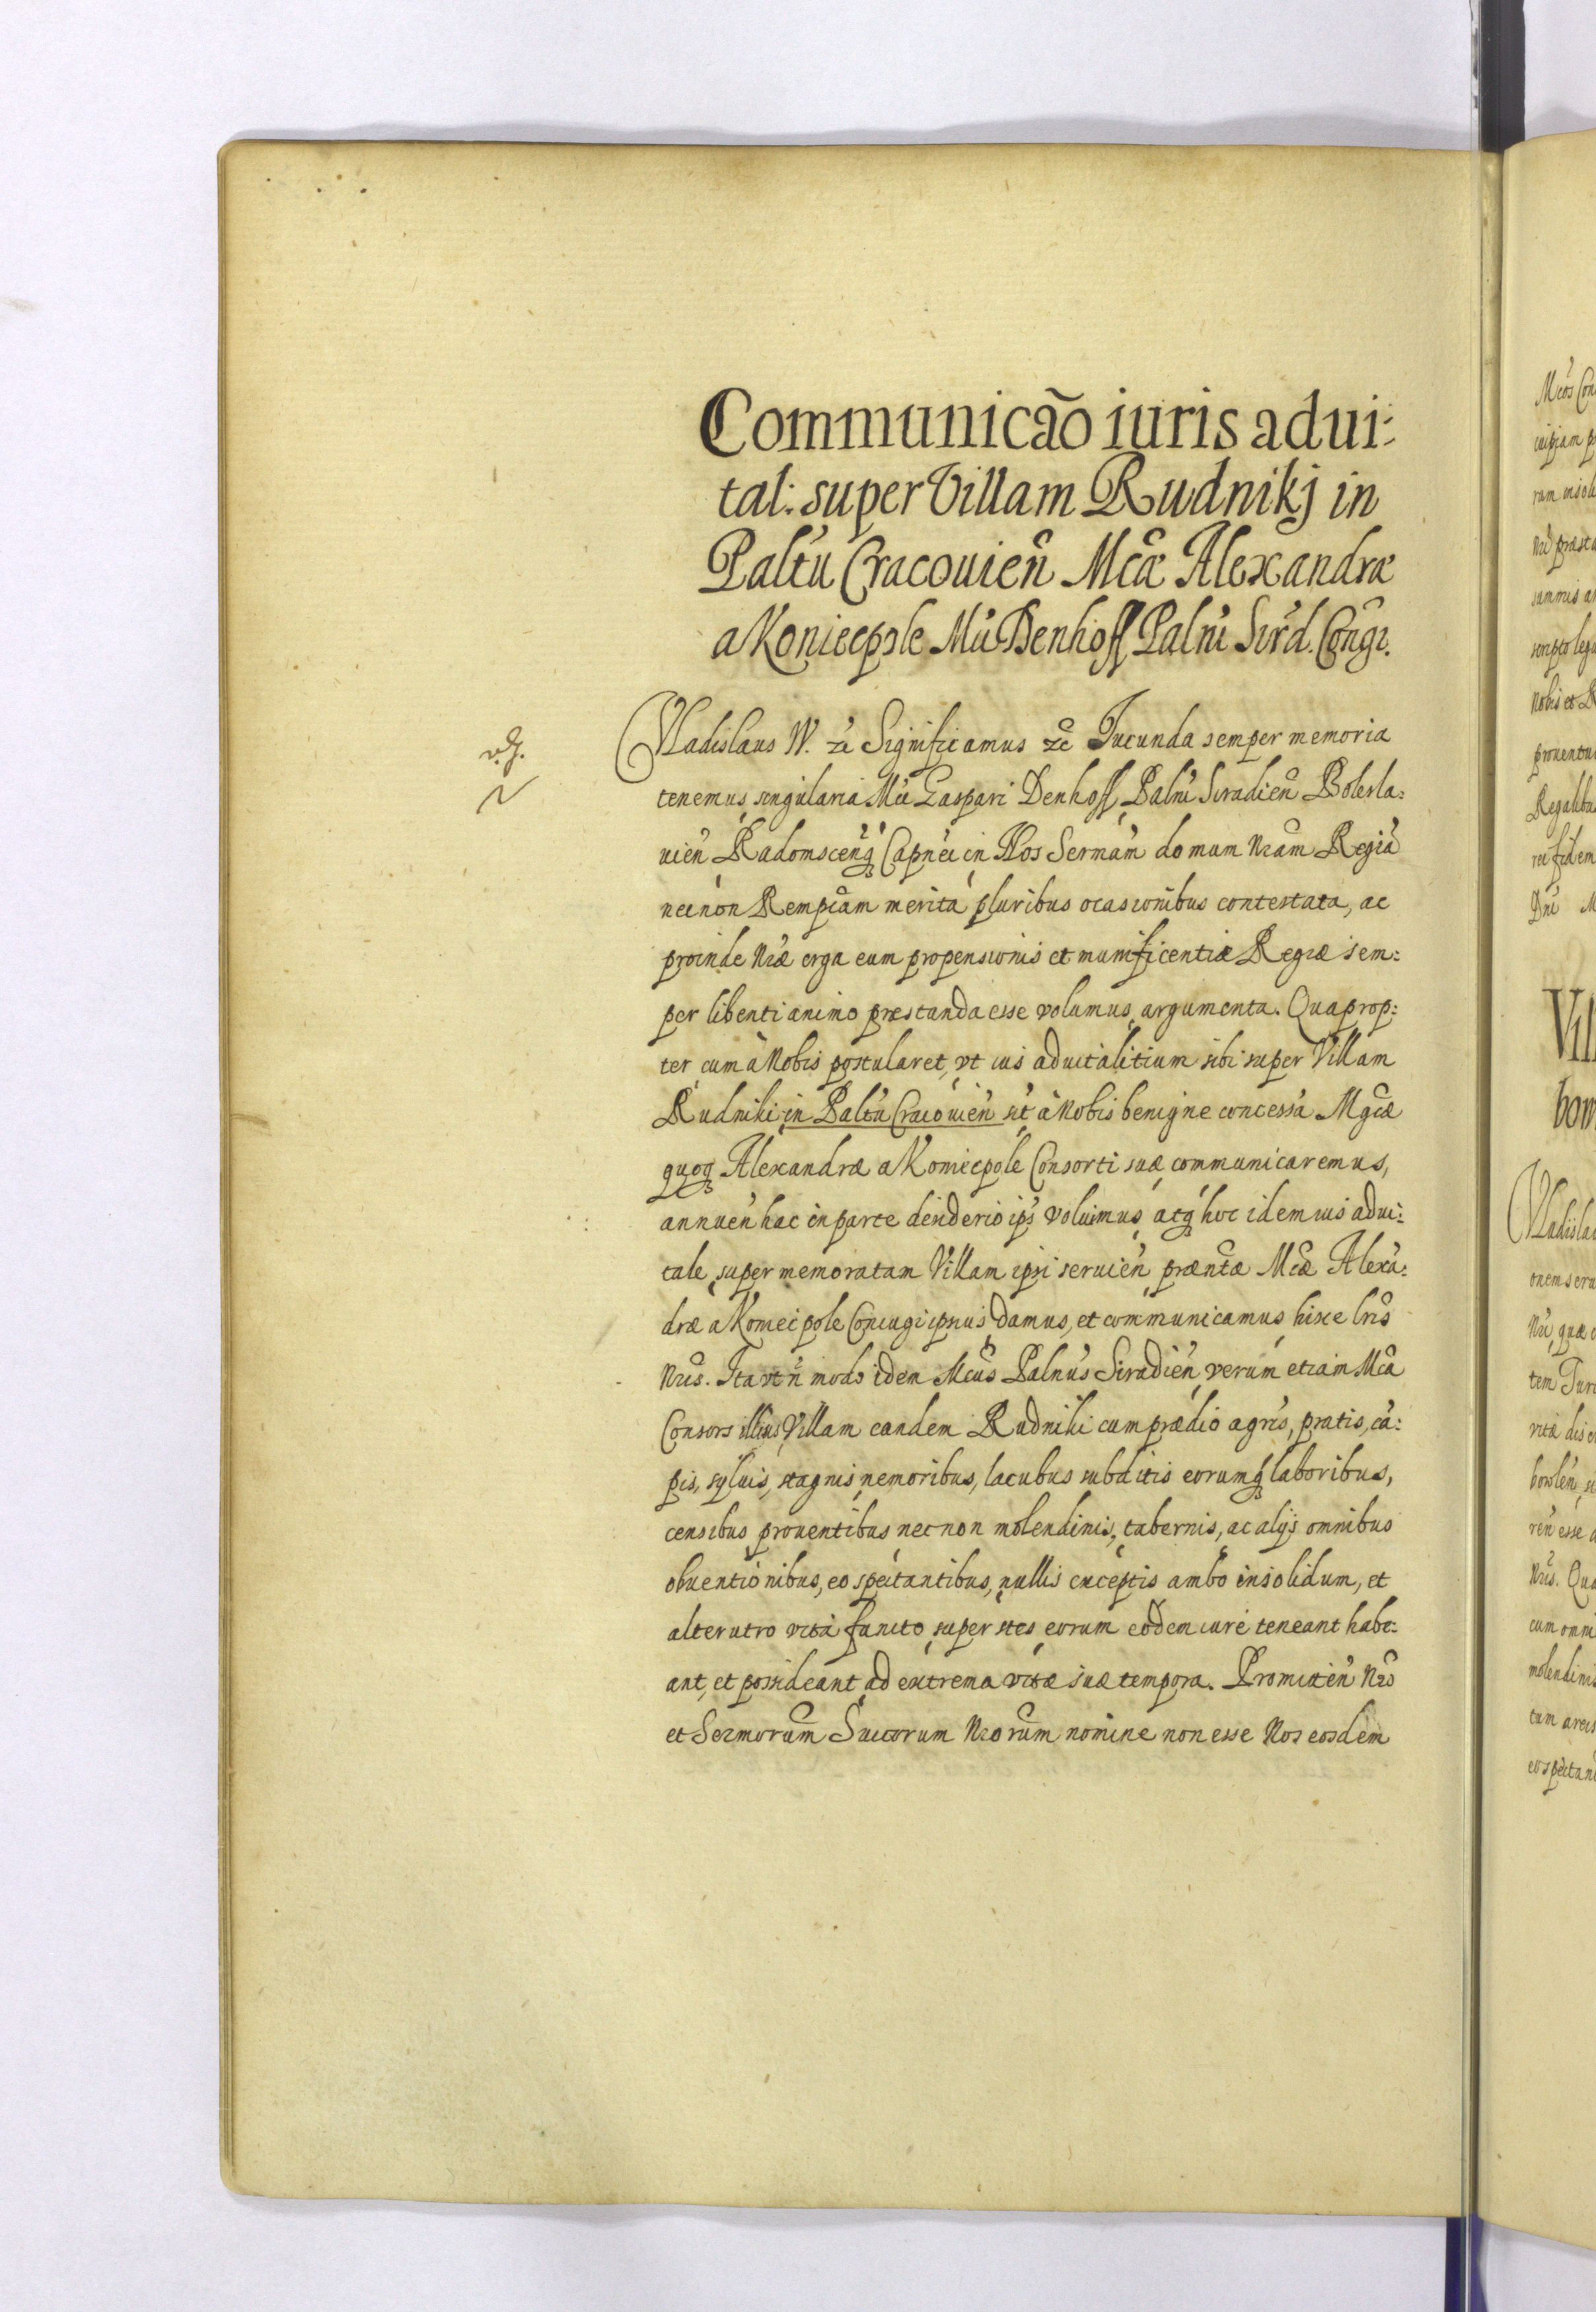 Communicão iuris adui:
tal: super Villam Rudnikj in
Paltũ Cracouień Mcæ Alexandræ
a Koniecpole Mci Denhoff Palni Sird. Congi.
Vladislaus IV. &c Significamus &c Iucunda semper memoria
tenemus singularia Mci Gaspari Denhoff Palni Siradień Boles la:
uień Radomsceńq Capnei in Nos Sermam domum Nram Regiã
necnon Rempcam merita pluribus ocasionibus contestata, ac
proinde Nræ erga eum propensionis et munificentiæ Regiæ sem:
per libenti animo præstanda esse volumus argumenta. Quaprop:
ter cum à Nobis postularet, vt ius aduitalitium sibi super Villam
Rudniki in Paltu Cracouień sit à Nobis benigne concessa Mgcæ
quoq Alexandræ a Koniecpole Consorti suæ communicaremus,
annueń hac in parte desiderio ips voluimus atq hoc idem ius adui:
tale super memoratam Villam ipsi seruień præntæ Mcæ Alexã:
dræ a Koniecpole Coniugi ipsius damus, et communicamus hisce lris
Nris. Ita vt ñ modo idem Mcus Palnus Siradień verum etiam Mca
Consors illius Villam eandem Rudniki cum prædio agris, pratis, cã:
pis, syluis, stagnis nemoribus, lacubus subditis eorumq laboribus,
censibus prouentibus necnon molendinis, tabernis, ac alijs omnibus
obuentionibus, eo spectantibus, nullis exceptis ambo insolidum, et
alterutro vita functo superstes eorum eodem iure teneant habe:
ant, et possideant ad extrema vitæ suæ tempora. Promitteń Nro
et Sermorum Succorum Nrorum nomine non esse Nos eosdem